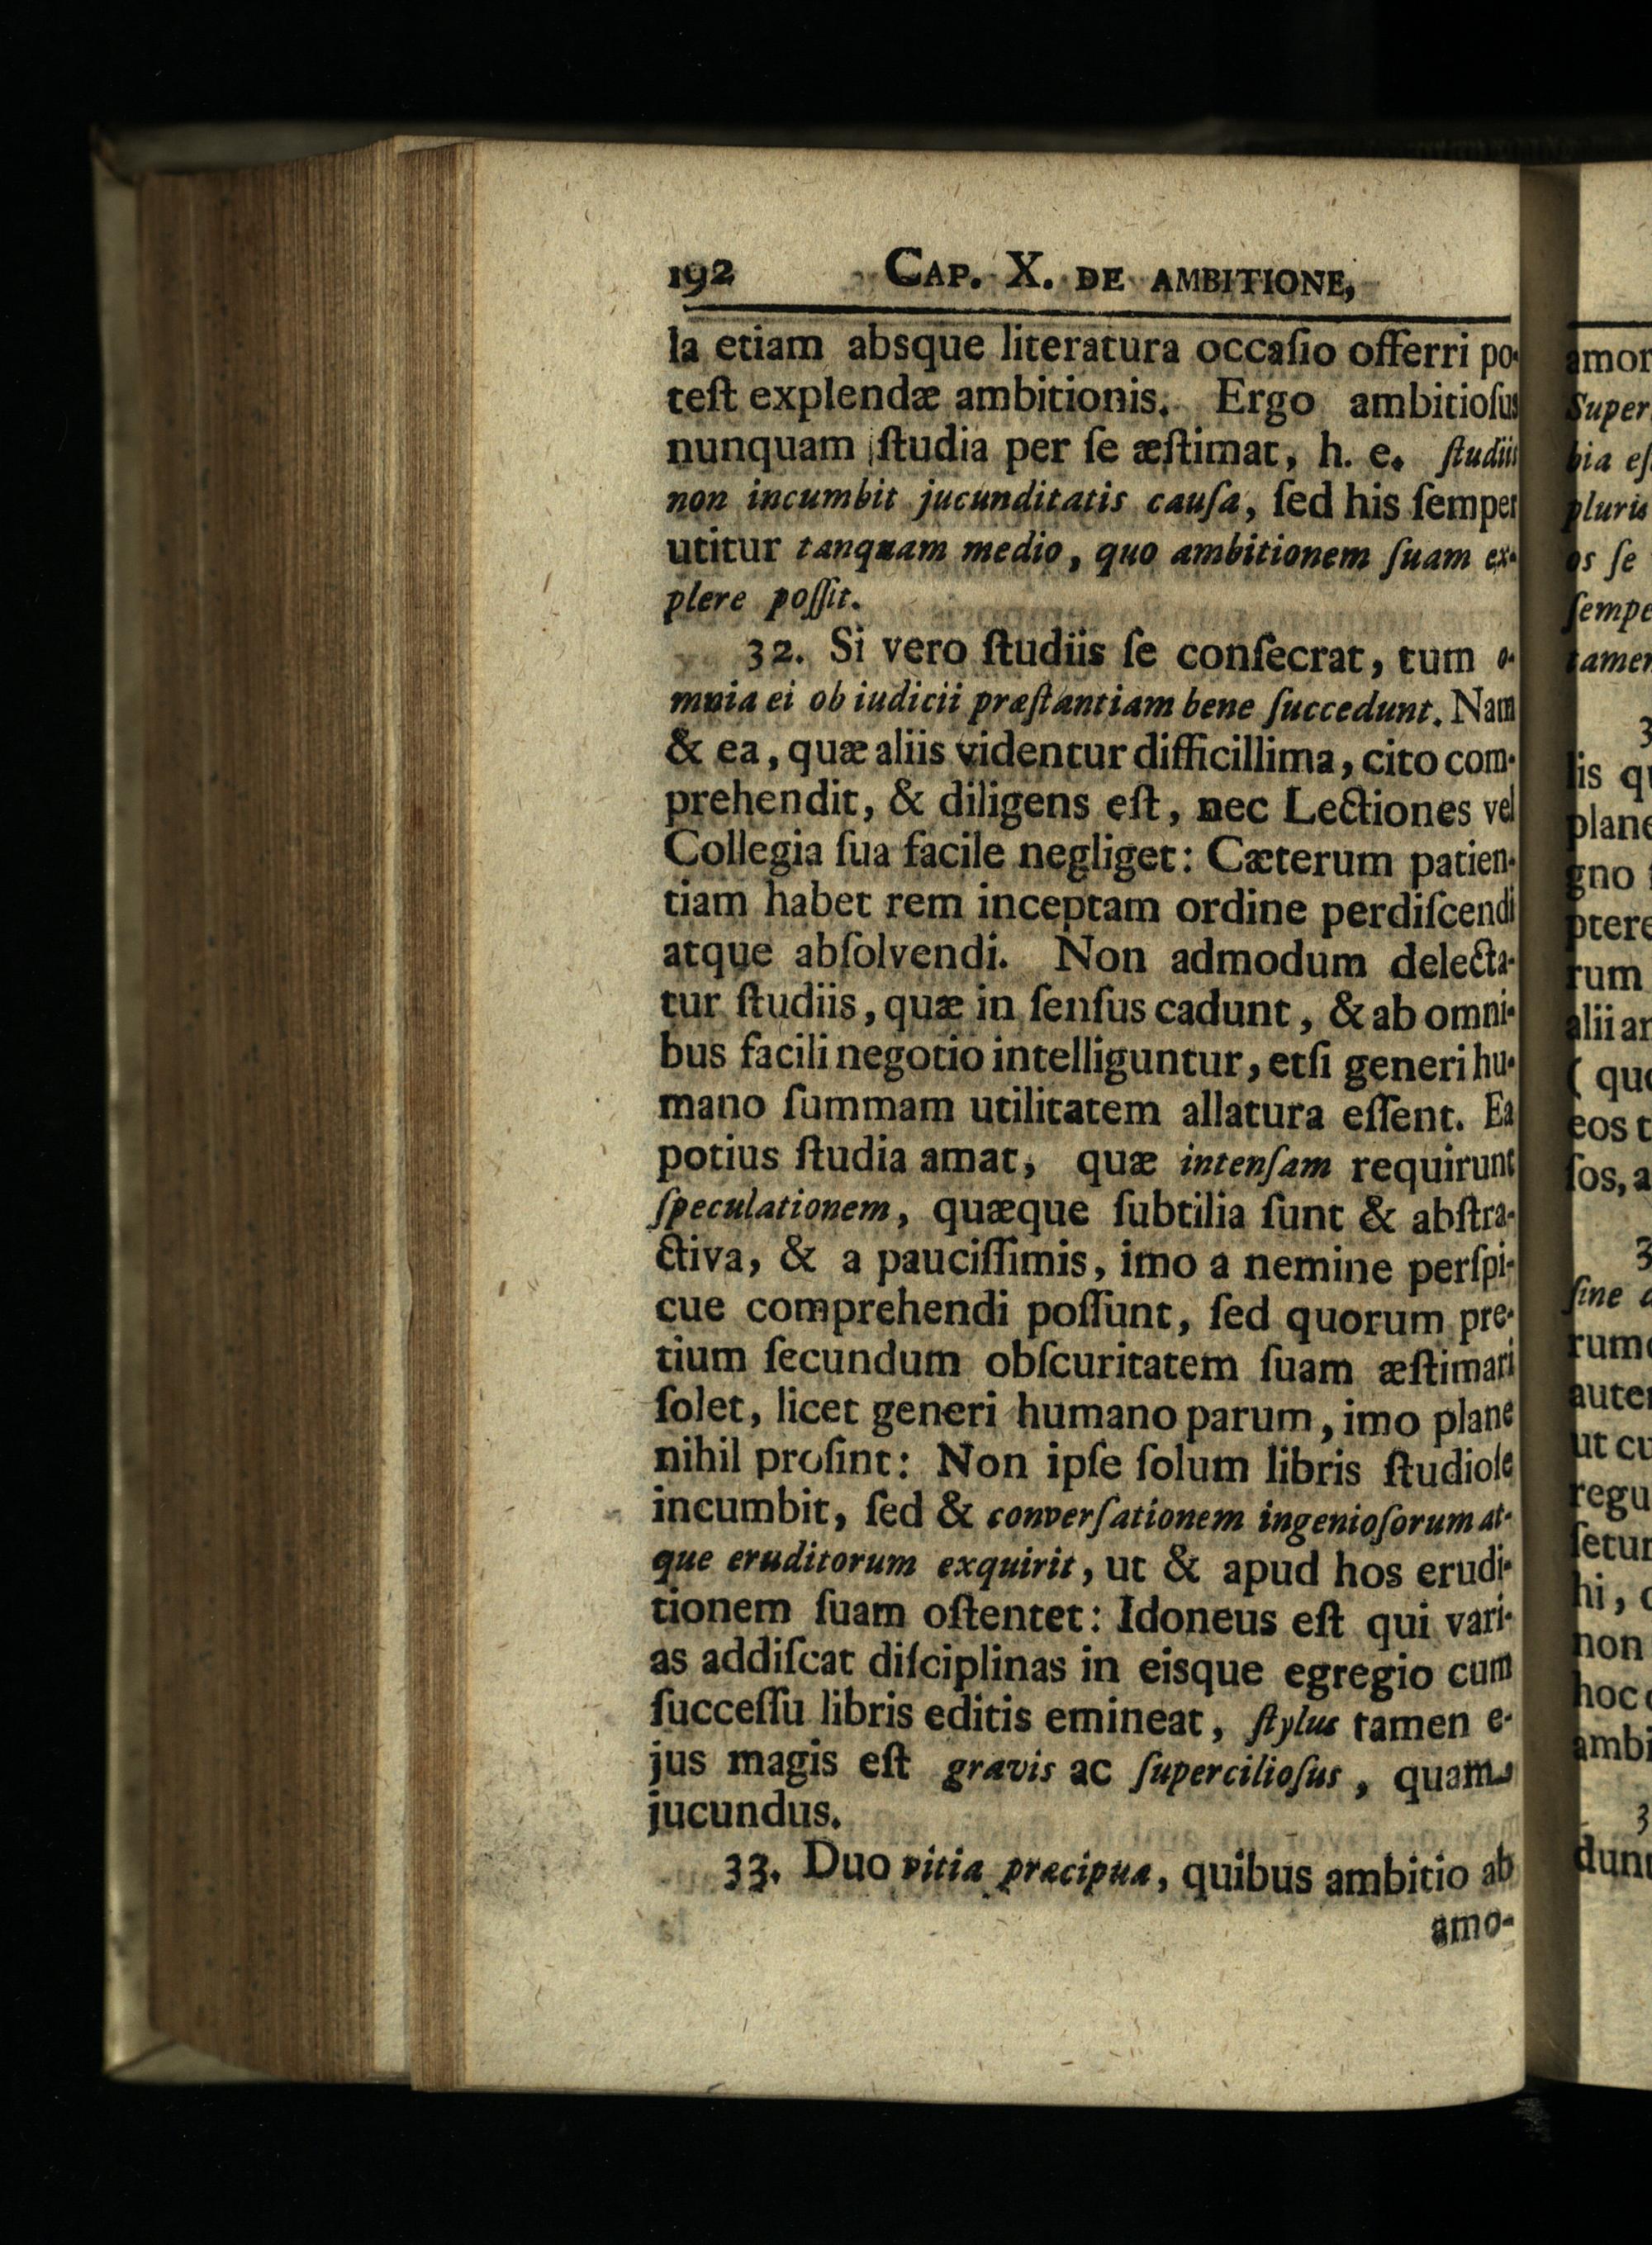 192 CAP. X. DE AMBITIONE,
la etiam absque literatura occaſio offerri po-
teſt explendæ ambitionis. Ergo ambitioſus
nunquam ſtudia per ſe æſtimat, h. e. ſtudiis
non incumbit jucunditatis cauſa, ſed his ſemper
utitur tanquam medio, quo ambitionem ſuam ex-
plere poſſit.
32. Si vero ſtudiis ſe conſecrat, tum o-
mnia ei ob iudicii præſtantiam bene ſuccedunt. Nam
& ea, quæ aliis videntur difficillima, cito com-
prehendit, & diligens eſt, nec Lectiones vel
Collegia ſua facile negliget: Cæterum patien-
tiam habet rem inceptam ordine perdiſcendi
atque abſolvendi. Non admodum delecta-
tur ſtudiis, quæ in ſenſus cadunt, & ab omni-
bus facili negotio intelliguntur, etſi generi hu-
mano ſummam utilitatem allatura eſſent. Ea
potius ſtudia amat, quæ intenſam requirunt
ſpeculationem, quæque ſubtilia ſunt & abſtra-
ctiva, & a pauciſſimis, imo a nemine perſpi-
cue comprehendi poſſunt, ſed quorum pre-
tium ſecundum obſcuritatem ſuam æſtimari
ſolet, licet generi humano parum, imo plane
nihil proſint: Non ipſe ſolum libris ſtudioſe
incumbit, ſed & converſationem ingenioſorum at-
que eruditorum exquirit, ut & apud hos erudi-
tionem ſuam oſtentet: Idoneus eſt qui vari-
as addiſcat diſciplinas in eisque egregio cum
ſucceſſu libris editis emineat, ſtylus tamen e-
jus magis eſt gravis ac ſupercilioſus, quam
jucundus.
33. Duo vitia præcipua, quibus ambitio ab
amo-